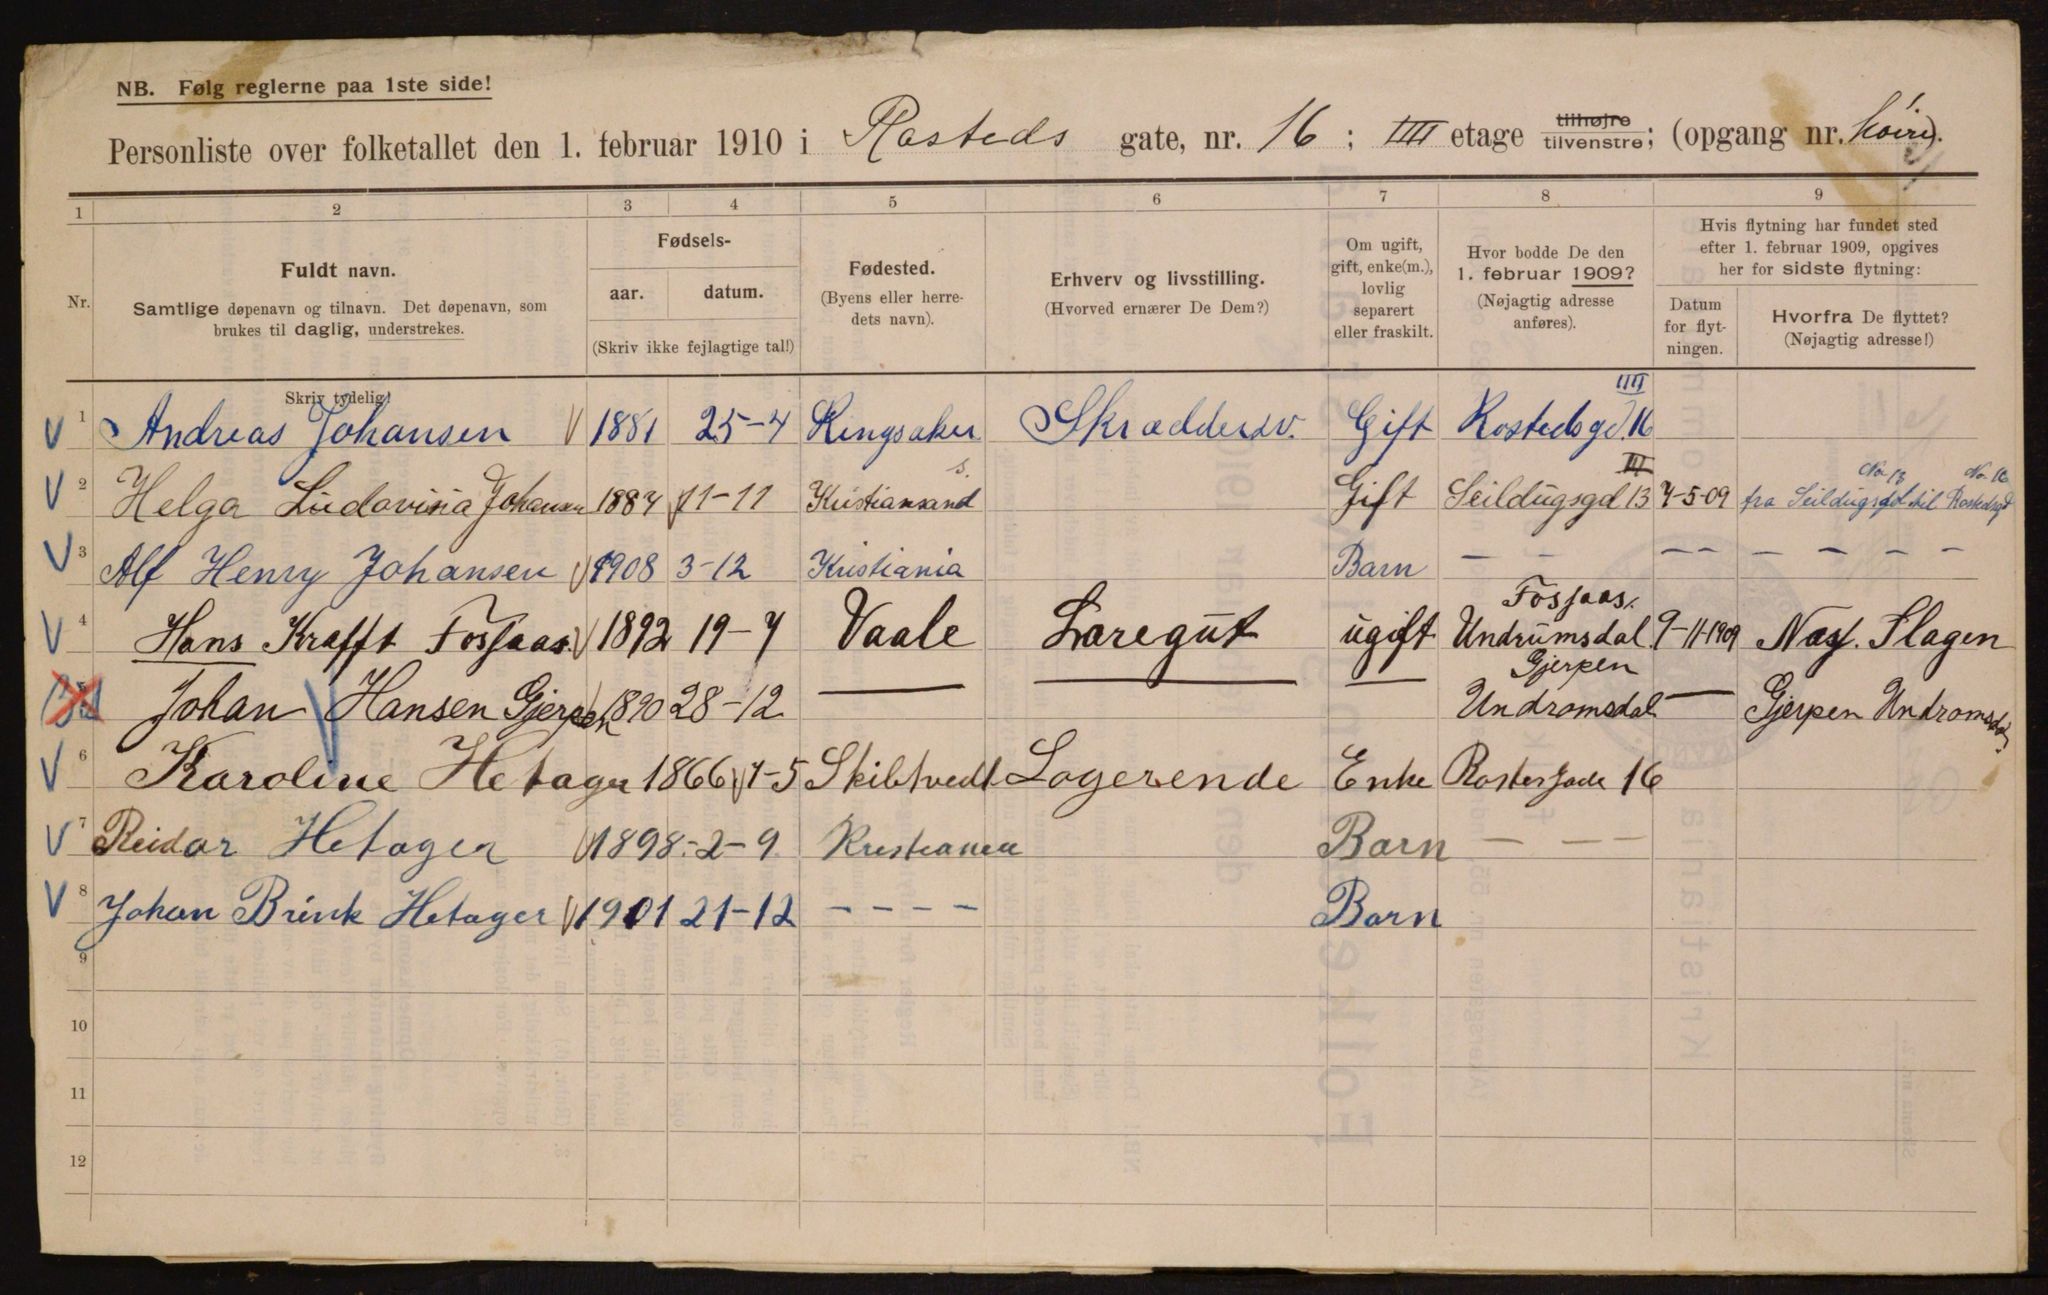 NB. Følg reglerne paa 1ste side!
Personliste over folketallet den 1. februar 1910 i Rosteds gate, nr. 16 ; IIII etage tilhøjre tilvenstre; (opgang nr. høire).
1 2 3 4 5 6 7 8 9
Nr.
Fuldt navn.
Samtlige døpenavn og tilnavn. Det døpenavn, som
brukes til daglig, understrekes.
Skriv tydelig!
Fødsels-
aar. datum.
(Skriv ikke fejlagtige tal!)
Fødested.
(Byens eller herre-
dets navn).
Erhverv og livsstilling.
(Hvorved ernærer De Dem?)
Om ugift,
gift, enke(m.),
lovlig
separert
eller fraskilt.
Hvor bodde De den
1. februar 1909?
(Nøjagtig adresse
anføres).
Hvis flytning har fundet sted
efter 1. februar 1909, opgives
her for sidste flytning:
Datum
for flyt-
ningen.
Hvorfra De flyttet?
(Nøjagtig adresse!)
1 Andreas Johansen 1881 25-4 Ringsaker Skræddersv. Gift Rostedsgd. 16 IIII
2 Helga Ludovisia Johansen 1887 11-11 Kristiansand s. Gift Seildugsgd 13 III 7-5-09 fra Seildugsgd No 13 til Rostedsgd No 16
3 Alf Henry Johansen 1908 3-12 Kristiania Barn — — — — — — — —
4 Hans Krafft Fossaas 1892 19-7 Vaale Laregut ugift Fossaas. Undrumsdal 9-11-1909 Næs. Slagen
5 Johan Hansen Gjerpen 1890 28-12 — — — Gjerpen Undromsdal — Gjerpen Undromsdal
6 Karoline Hetager 1866 7-5 Skibtvedt Logerende Enke Rostesgade 16
7 Reidar Hetager 1898 2-9 Kristiania Barn — — —
8 Johan Brink Hetager 1901 21-12 — — — — Barn
9
10
11
12